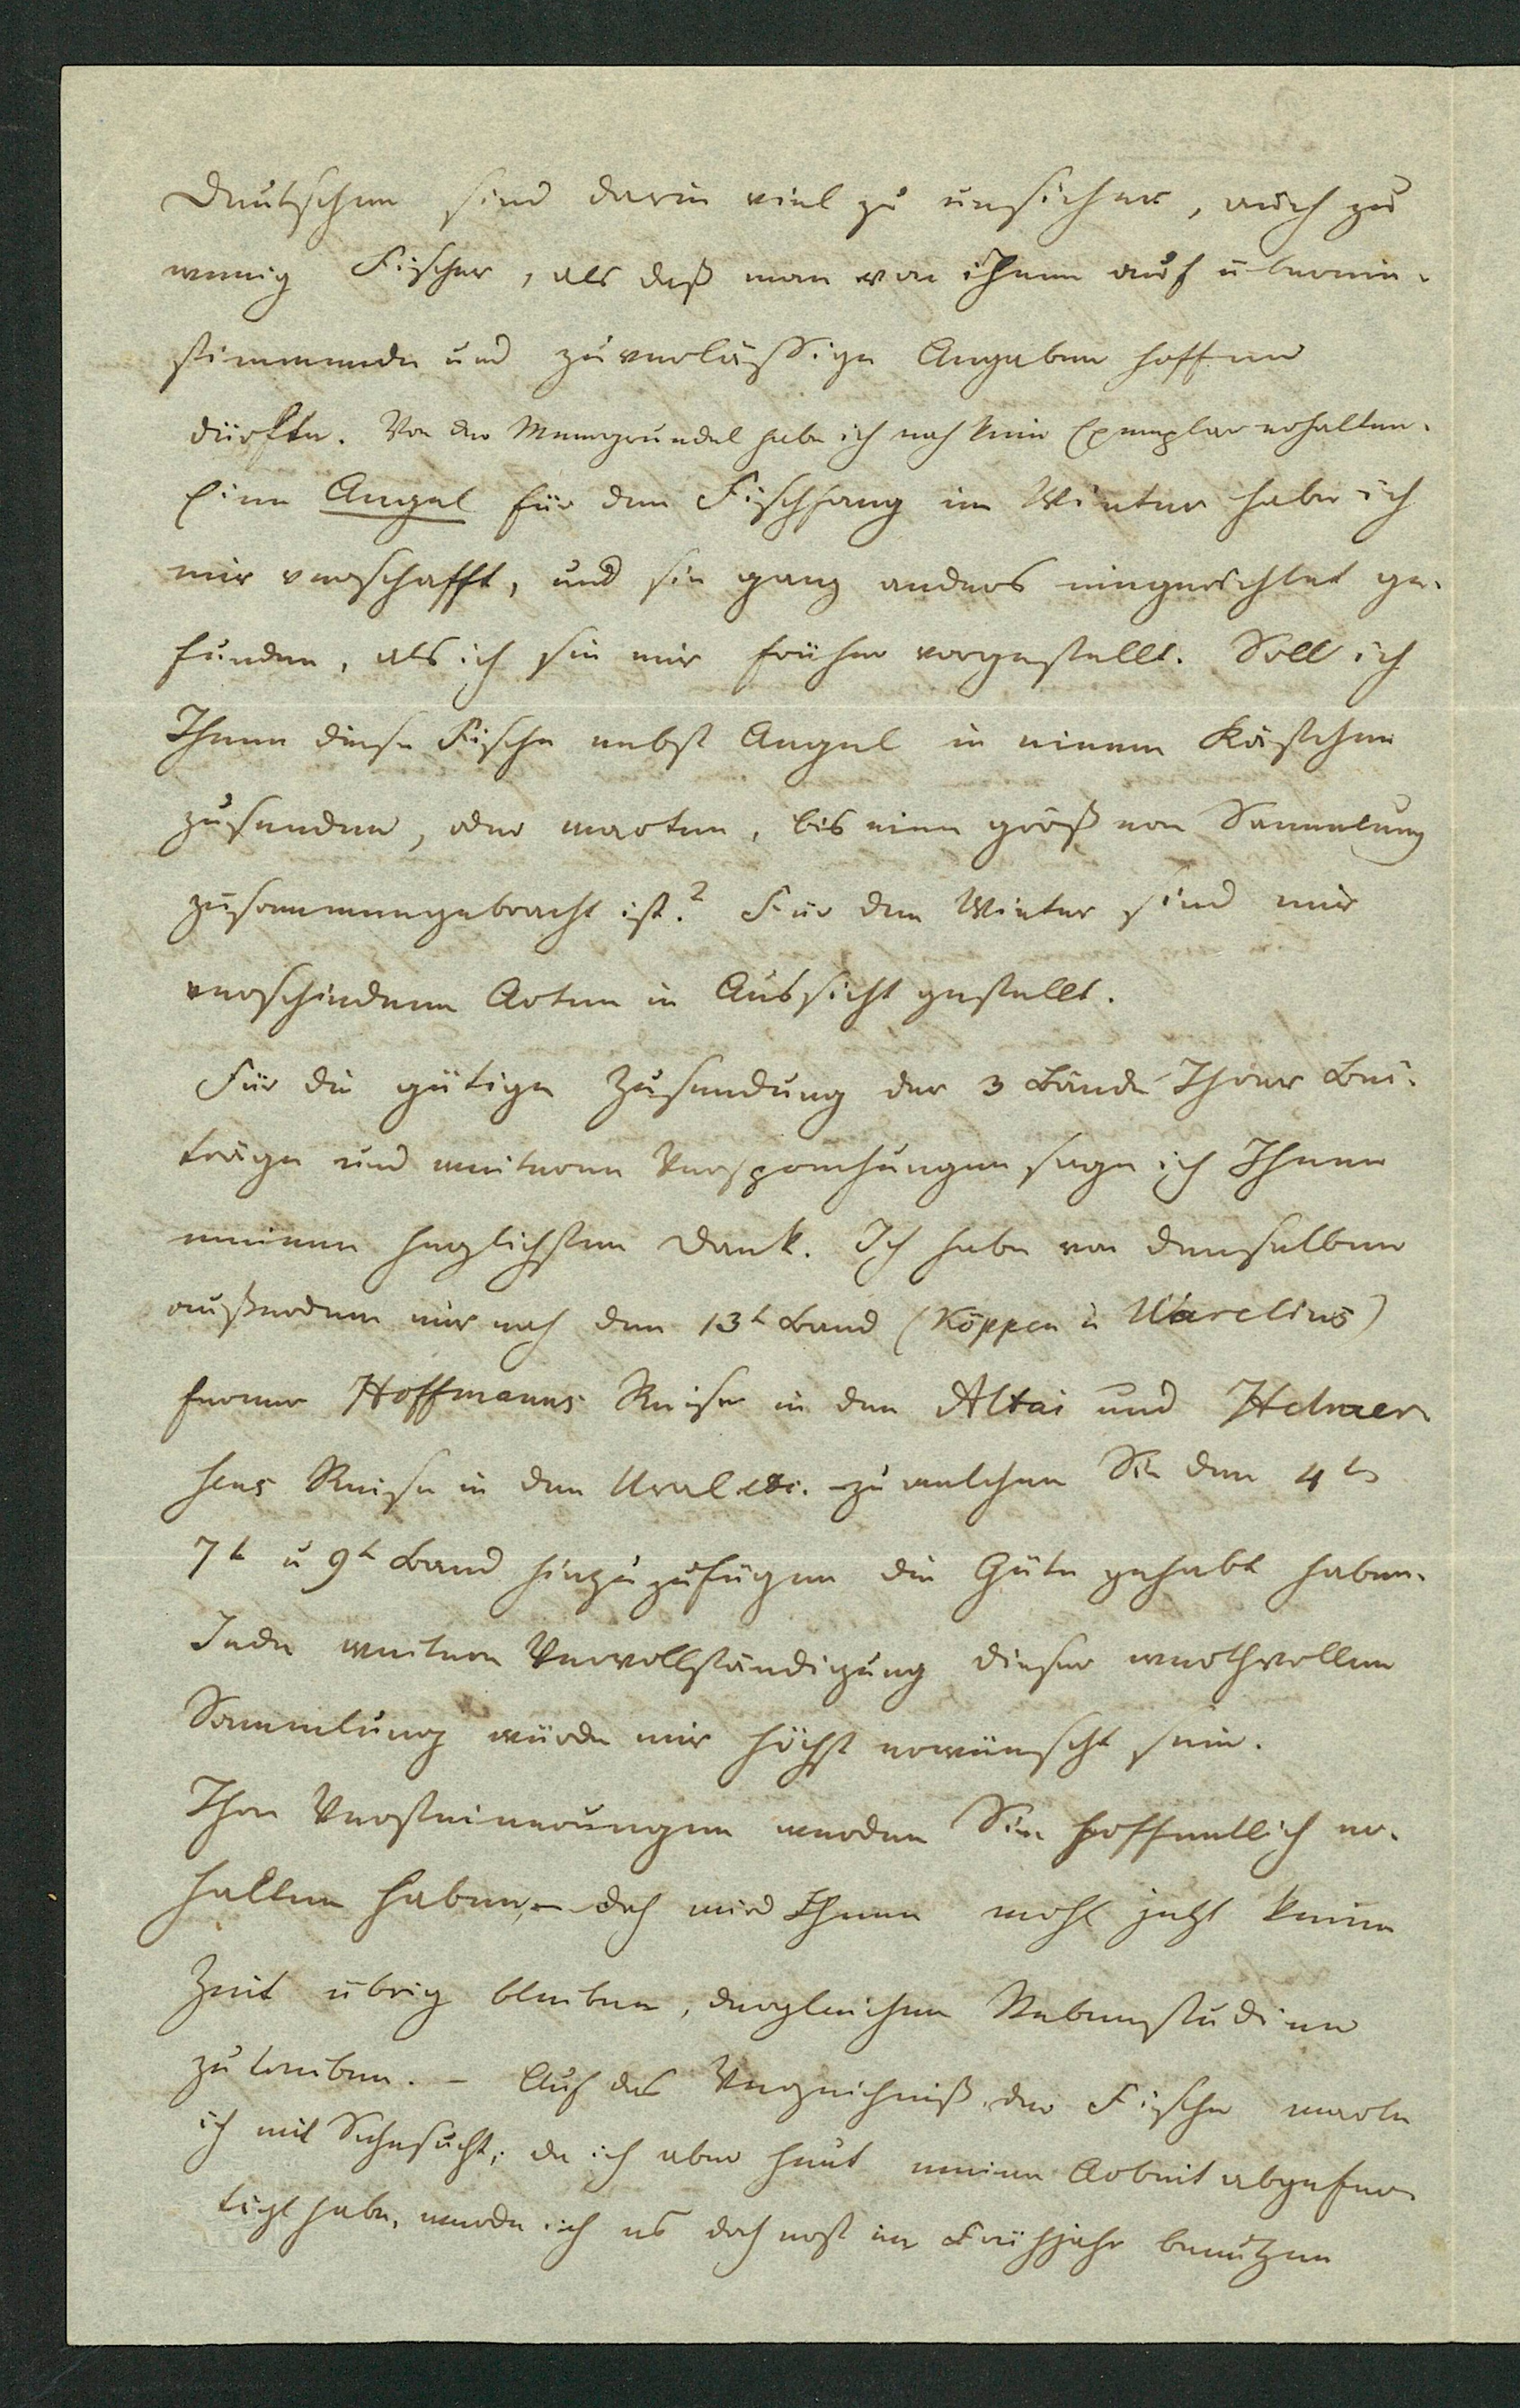 Deutschen sind darin viel zu unsicher, auch zu
wenig Fischer, als daß man von ihnen auf überein-
stimmende und zuverläßige Angaben hoffen
dürfte. Von der Meergrundel habe ich noch kein Exemplar erhalten.
Eine Angel für den Fischfang im Winter habe ich
mir verschafft, und sie ganz anders eingerichtet ge-
funden, als ich sie mir früher vorgestellt. Soll ich
Ihnen diese Fische nebst Angel in einem Kästchen
zusenden, oder warten, bis eine größere Sammlung
zusammengebracht ist? Für den Winter sind mir
verschiedene Arten in Aussicht gestellt.
Für die gütige Zusendung der 3 Bände Ihrer Bei-
träge und weiteren Versprechungen sage ich Ihnen
meinen herzlichsten Dank. Ich habe von denselben
außerdem nur noch den 13t Band (Köppen u Warelius)
ferner Hoffmanns Reise in den Altai und Helmer-
sens Reise in den Ural etc. zu welchen Sie den 4t
7t u 9t Band hinzuzufügen die Güte gehabt haben.
Jede weitere Vervollständigung dieser werthvollen
Sammlung würde mir höchst erwünscht sein.
Ihre Versteinerungen werden Sie hoffentlich er-
halten haben, – doch wird Ihnen wohl jetzt keine
Zeit übrig bleiben, dergleichen Nebenstudien
zu treiben. – Auf das Verzeichniß der Fische warte
ich mit Sehnsucht; da ich aber heut meine Arbeit abgefer-
tigt habe, werde ich es doch erst im Frühjahr benutzen